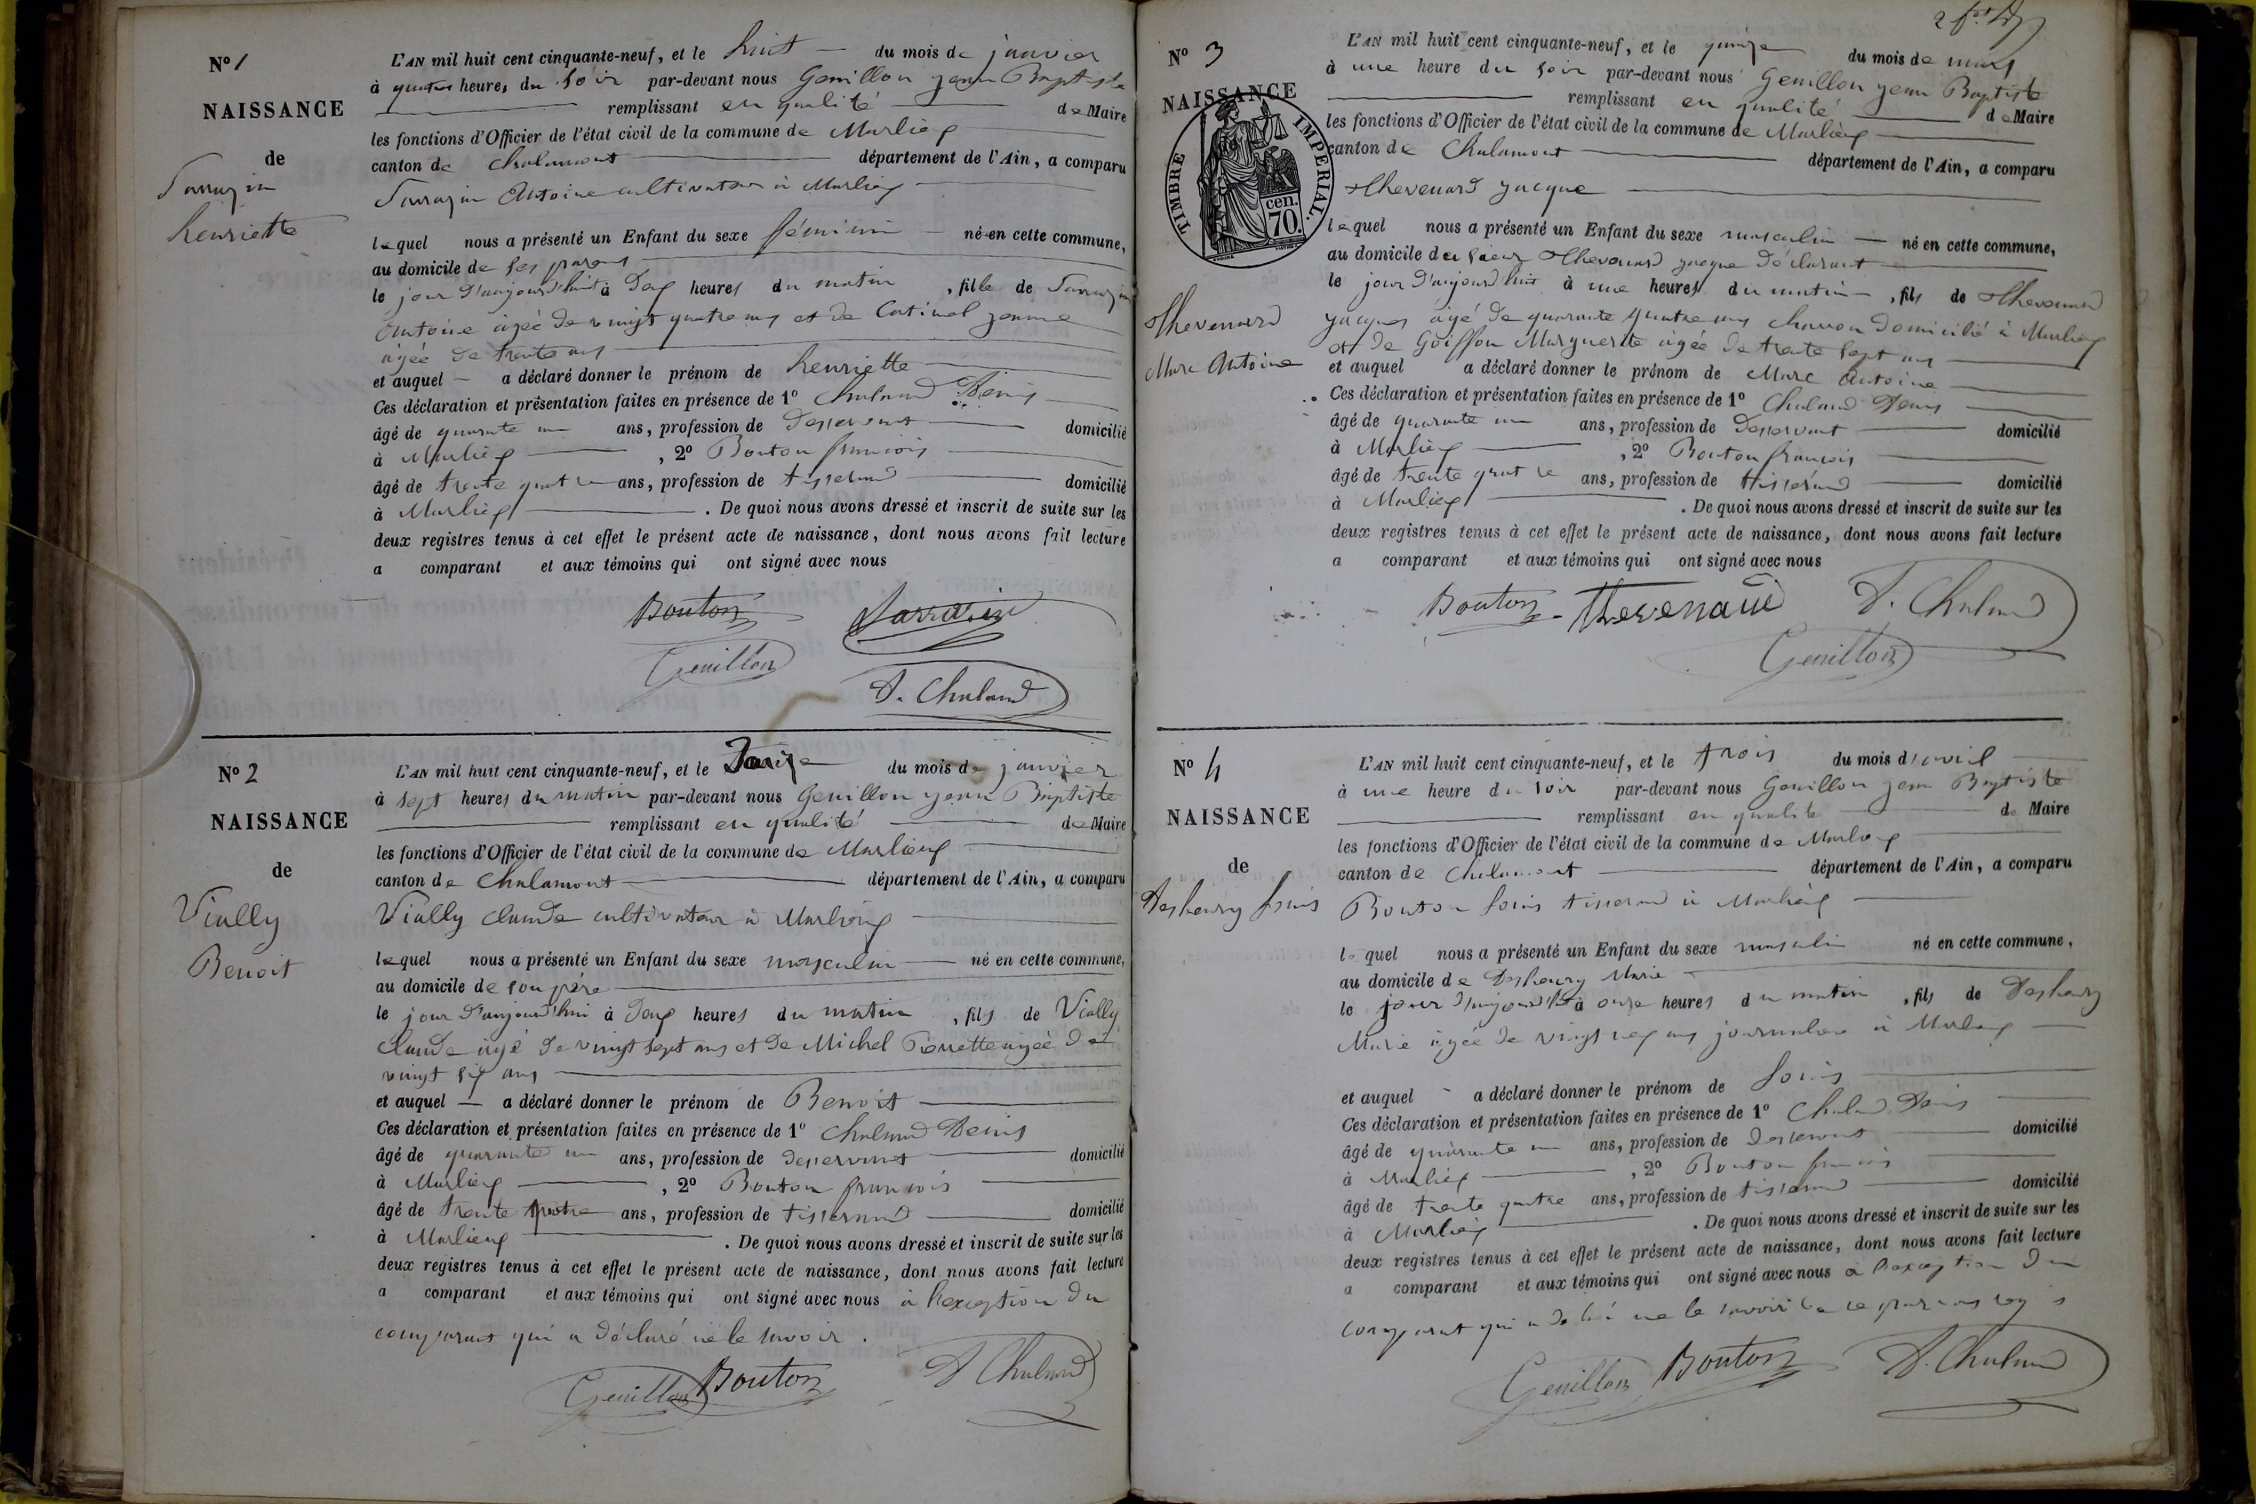 No 1
NAISSANCE
de
Sarrazin
henriette
L'AN mil huit cent cinquante-neuf, et le huit du mois de janvier
à quatre heures du soir par-devant nous Genillon jean Baptiste
remplissant en qualité de Maire
les fonctions d'Officier de l'état civil de la commune de Marlieux
canton de Chalamont département de l'Ain, a comparu
Sarrazin Antoine cultivateur à Marlieux
lequel nous a présenté un Enfant du sexe féminin né en cette commune,
au domicile de ses parens
le jour d'aujourd'hui à deux heures du matin, fille de Sarrazin
Antoine âgé de vingt quatre ans et de jeanne
âgée de trente ans
et auquel a déclaré donner le prénom de henriette
Ces déclaration et présentation faites en présence de 1º Chaland Denis
âgé de quarante un ans, profession de desservant domicilié
à Marlieux, 2º Bouton françois
âgé de trente quatre ans, profession de tisserand domicilié
à Marlieux. De quoi nous avons dressé et inscrit de suite sur les
deux registres tenus à cet effet le présent acte de naissance, dont nous avons fait lecture
a comparant et aux témoins qui ont signé avec nous
Bouton Sarrazin
Genillon
D. Chaland
No 2
NAISSANCE
de
Vially
Benoit
L'AN mil huit cent cinquante-neuf, et le du mois de janvier
à sept heures du matin par-devant nous Genillon jean Baptiste
remplissant en qualité de Maire
les fonctions d'Officier de l'état civil de la commune de Marlieux
canton de Chalamont département de l'Ain, a comparu
Vially claude cultivateur à Marlieux
lequel nous a présenté un Enfant du sexe masculin né en cette commune,
au domicile de son père
le jour d'aujourd'hui à deux heures du matin, fils de Vially
Claude âgé de vingt sept ans et de Michel Pierrette âgée de
vingt six ans
et auquel a déclaré donner le prénom de Benoit
Ces déclaration et présentation faites en présence de 1º Chaland Denis
âgé de quarante un ans, profession de desservant domicilié
à Marlieux, 2º Bouton françois
âgé de trente quatre ans, profession de tisserand domicilié
à Marlieux. De quoi nous avons dressé et inscrit de suite sur les
deux registres tenus à cet effet le présent acte de naissance, dont nous avons fait lecture
a comparant et aux témoins qui ont signé avec nous à l'exception du
comparant qui a déclaré ne le savoir.
Genillon Bouton D Chaland
No 3
NAISSANCE
TIMBRE IMPERIAL.
cen.
70.
Thevenard
Marc Antoine
L'AN mil huit cent cinquante-neuf, et le quinze du mois de mars
à une heure du soir par-devant nous Genillon jean Baptiste
remplissant en qualité de Maire
les fonctions d'Officier de l'état civil de la commune de Marlieux
canton de Chalamont département de l'Ain, a comparu
Thevenard jacque
lequel nous a présenté un Enfant du sexe masculin né en cette commune,
au domicile du sieur Thevenard jacque déclarant
le jour d'aujourd'hui à une heures du matin, fils de Thevenard
jacques âgé de quarante quatre ans charron domicilié à Marlieux
et de Goiffon Marguerite âgée de trente sept ans
et auquel a déclaré donner le prénom de Marc Antoine
Ces déclaration et présentation faites en présence de 1º Chaland Denis
âgé de quarante un ans, profession de desservant domicilié
à Marlieux, 2º Bouton françois
âgé de trente quatre ans, profession de tisserand domicilié
à Marlieux. De quoi nous avons dressé et inscrit de suite sur les
deux registres tenus à cet effet le présent acte de naissance, dont nous avons fait lecture
a comparant et aux témoins qui ont signé avec nous
Bouton Thevenard D. Chaland
Genillon
No 4
NAISSANCE
de
Desheury Louis
L'AN mil huit cent cinquante-neuf, et le trois du mois d'avril
à une heure du soir par-devant nous Genillon jean Baptiste
remplissant en qualité de Maire
les fonctions d'Officier de l'état civil de la commune de Marlieux
canton de Chalamont département de l'Ain, a comparu
Bouton Louis tisserand à Marlieux
lequel nous a présenté un Enfant du sexe masculin né en cette commune,
au domicile de Desheury Marie
le jour d'aujourd'hui à onze heures du matin, fils de Desheury
Marie âgée de vingt ans journalière à Marlieux
et auquel a déclaré donner le prénom de Louis
Ces déclaration et présentation faites en présence de 1º Chaland Denis
âgé de quarante un ans, profession de desservant domicilié
à Marlieux, 2º Bouton françois
âgé de trente quatre ans, profession de tisserand domicilié
à Marlieux. De quoi nous avons dressé et inscrit de suite sur les
deux registres tenus à cet effet le présent acte de naissance, dont nous avons fait lecture
a comparant et aux témoins qui ont signé avec nous à l'exception du
comparant qui a ne le savoir de ce par nous requis
Genillon Bouton D. Chaland